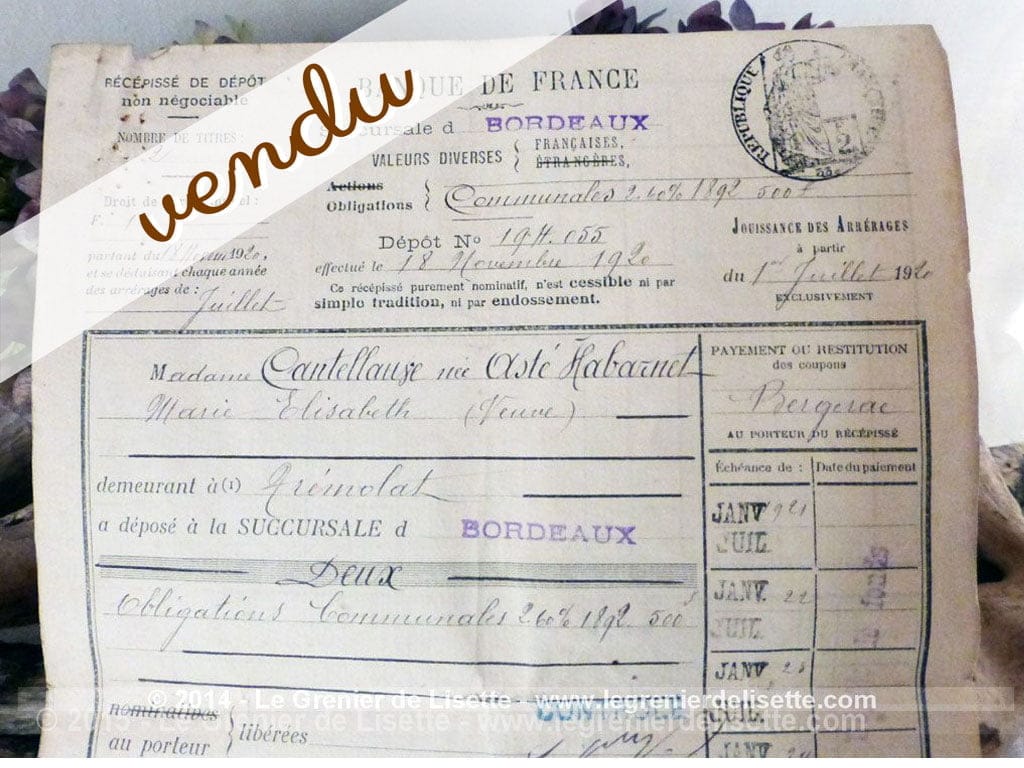 vendu
RÉCÉPISSÉ DE DÉPÔT
non négociable
NOMBRE DE TITRES:
Droit de
F. 1
partant du 18 1920,
et se déduisant chaque année
des arrérages de: Juillet
BANQUE DE FRANCE
Succursale d BORDEAUX
VALEURS DIVERSES { FRANÇAISES, ÉTRANGÈRES,
Actions
Obligations } Communales 2.60% 1892 500f
Dépôt No 194.055
effectué le 18 Novembre 1920
Ce récépissé purement nominatif, n'est cessible ni par
simple tradition, ni par endossement.
RÉPUBLIQUE FRANÇAISE
2
JOUISSANCE DES ARRÉRAGES
à partir
du 1er Juillet 1920
EXCLUSIVEMENT
Madame Cantellauze née Asté Habarnet
Marie Elisabeth (Veuve)
demeurant à (1) Trémolat
a déposé à la SUCCURSALE d BORDEAUX
Deux
Obligations Communales 2.60% 1892 500f
nominatives
au porteur } libérées
PAYEMENT OU RESTITUTION
des coupons
Bergerac
AU PORTEUR DU RÉCÉPISSÉ
Échéance de: Date du payement
JANV 1921
JUIL.
JANV. 22
JUIL.
JANV. 23
JUIL.
JANV. 24
© 2014 - Le Grenier de Lisette - www.legrenierdelisette.com
© 2019 - Le Grenier de Lisette - www.legrenierdelisette.com